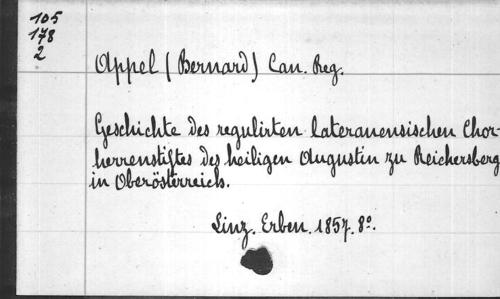 105
178
2
Appel (Bernard) Can. Reg.
Geschichte des regulirten lateranensischen Chor-
herrenstiftes des heiligen Augustin zu Reichersberg
in Oberösterreich.
Linz. Erben. 1857. 8º.